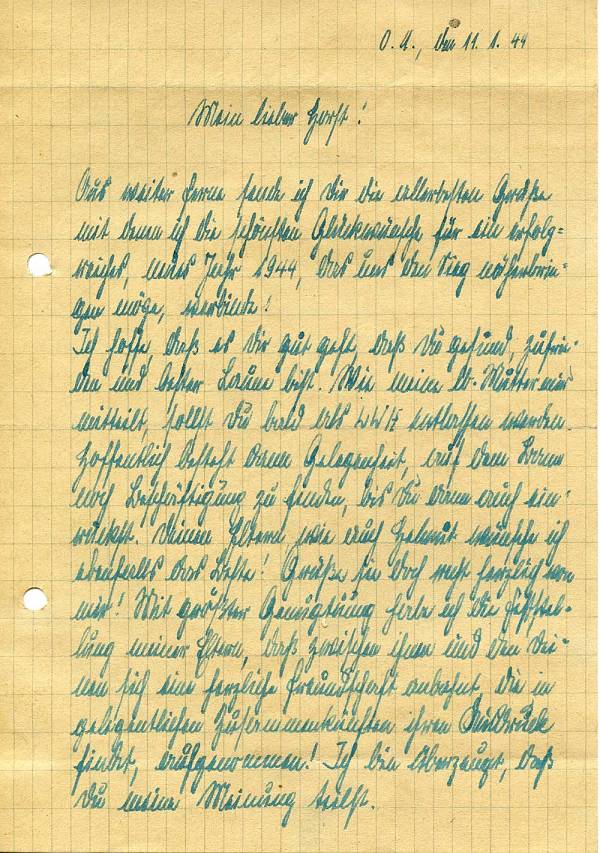 O. U., den 11. 1. 44
Mein lieber Horst!
Aus weiter Ferne sende ich Dir die allerbesten Grüße
mit denen ich die schönsten Glückwünsche für ein erfolg=
reiches, neues Jahr 1944, das uns den Sieg näherbrin-
gen möge, verbinde!
Ich hoffe, daß es Dir gut geht, daß Du gesund, zufrie-
den und bester Laune bist. Wie meine lb. Mutter mir
mitteilt, sollst Du bald als entlassen werden.
Hoffentlich besteht dann Gelegenheit, auf dem
noch Beschäftigung zu finden, bis Du dann auch ein-
rückst. Deinen Eltern wie auch Helmut wünsche ich
ebenfalls das Beste! Grüße sie doch recht herzlich von
mir! Mit größter Genugtuung habe ich die Feststel-
lung meiner Eltern, daß zwischen ihnen und den Dei-
nen sich eine herzliche Freundschaft anbahnt, die in
gelegentlichen Zusammenkünften ihren Ausdruck
findet, aufgenommen! Ich bin überzeugt, daß
Du meine Meinung teilst.